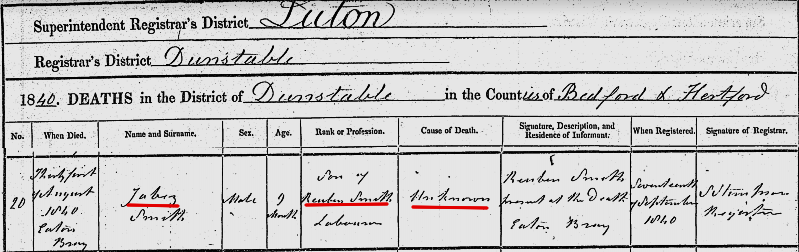 Superintendent Registrar's District Luton
Registrar's District Dunstable
1840. DEATHS in the District of Dunstable in the Counties of Bedford & Hertford
No. When Died. Name and Surname. Sex. Age. Rank or Profession. Cause of Death. Signature, Description, and Residence of Informant. When Registered. Signature of Registrar.
20
Thirty first
of August
1840
Eaton
Bray
Jabez
Smith
Male
9
Month
Son of
Reuben Smith
Labourer
Unknown
Reuben Smith
present at the Death
Eaton Bray
Seventeenth
of September
1840
Registrar